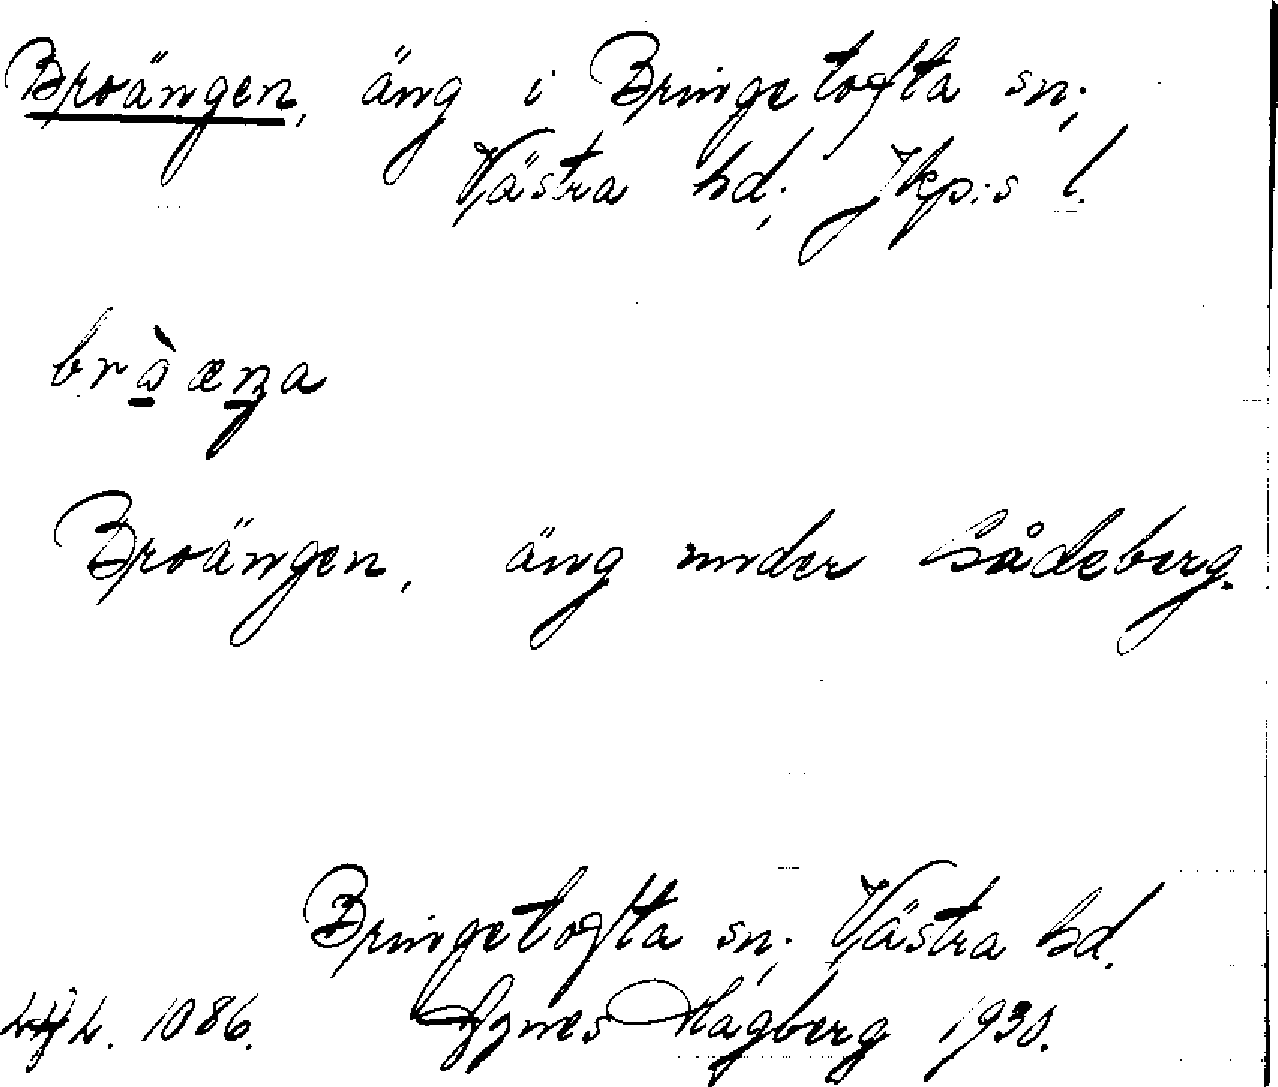 Broängen, äng i Bringetofta sn;
Västra hd; Jkp:s l.
bròæŋa
Broängen, äng under Sådeberg.
Bringetofta sn; Västra hd.
1086. Agnes Hagberg 1930.